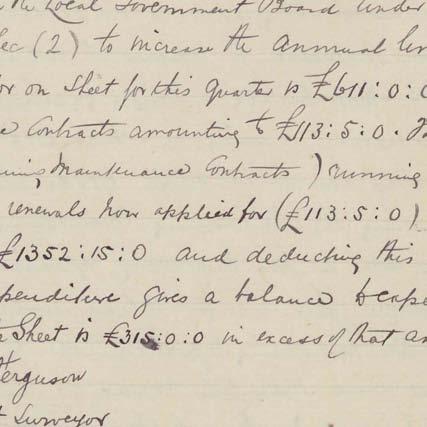 the Local Government Board under
Sec (2) to increase the annual lim
for on Sheet for this quarter is £611:0:0
Contracts amounting to £113:5:0.
Maintenance Contracts) running
renewals now applied for (£113:5:0)
£1352:15:0 and deducting this
expenditure gives a balance
Sheet is £315:0:0 in excess of that am
Ferguson
Surveyor